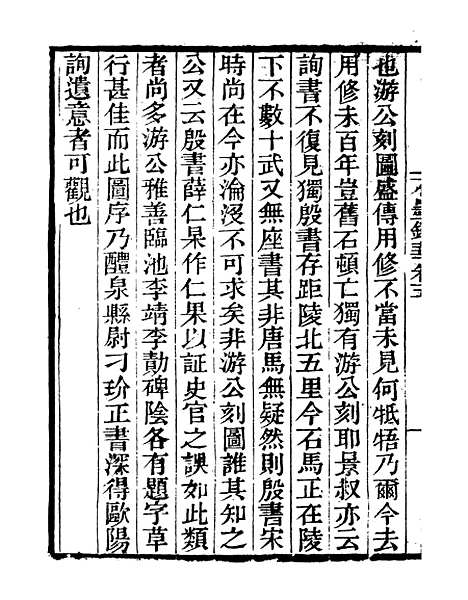 也游公刻圖盛傳用修不當未見何牴牾乃爾今去
用修未百年豈舊石頓亡獨有游公刻耶景叔亦云
詢書不復見獨殷書存距陵北五里今石馬正在陵
下不數十武又無座書其非唐馬無疑然則殷書宋
時尚在今亦淪沒不可求矣非游公刻圖誰其知之
公又云殷書薛仁杲作仁果以証史官之誤如此類
者尚多游公雅善臨池李靖李勣碑陰各有題字草
行甚佳而此圖序乃醴泉縣尉刁玠正書深得歐陽
詢遺意者可觀也